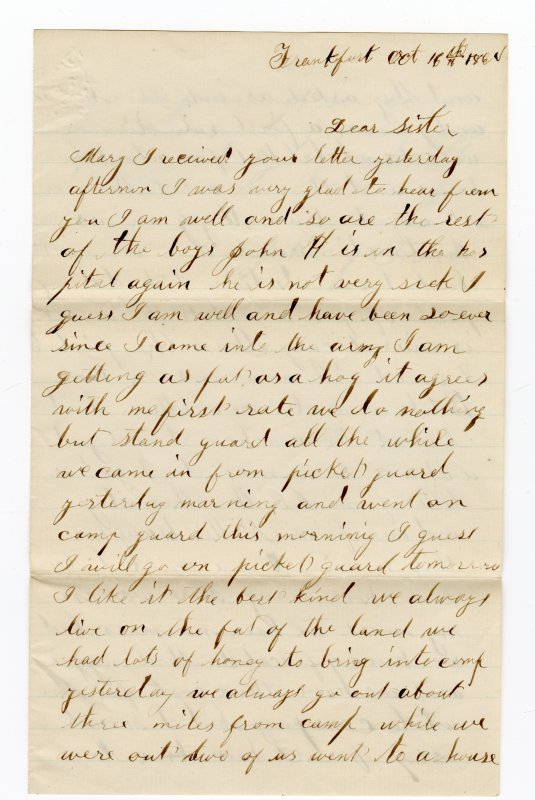 Frankfort Oct 16th 186
Dear Sister
Mary I received your letter yesterday
afternoon I was very glad to hear from
you I am well and so are the rest
of the boys John H is in the hos
pital again he is not very sick I
guess I am well and have been so ever
since I come into the army I am
getting as fat as a hog it agrees
with me first rate we do nothing
but stand guard all the while
we came in from picket guard
yesterday morning and went on
camp guard this morning I guess
I will go on picket guard tomorrow
I like it the best kind we always
live on the fat of the land we
had lots of honey to bring into camp
yesterday we always go out about
three miles from camp while we
were out two of us went to a house